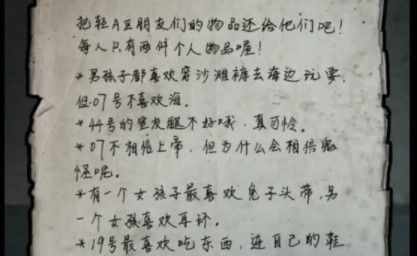 把轻A豆朋友们的物品还给他们吧！
每人只有两件个人物品喔！
*男孩子都喜欢穿沙滩裤去海边玩耍，
但07号不喜欢海。
*44号的室友腿不好哦，真可怜。
*07不相信上帝，但为什么会相信鬼
怪呢。
*有一个女孩子最喜欢兔子头带，另
一个女孩喜欢耳钉。
*19号最喜欢吃东西，连自己的鞋